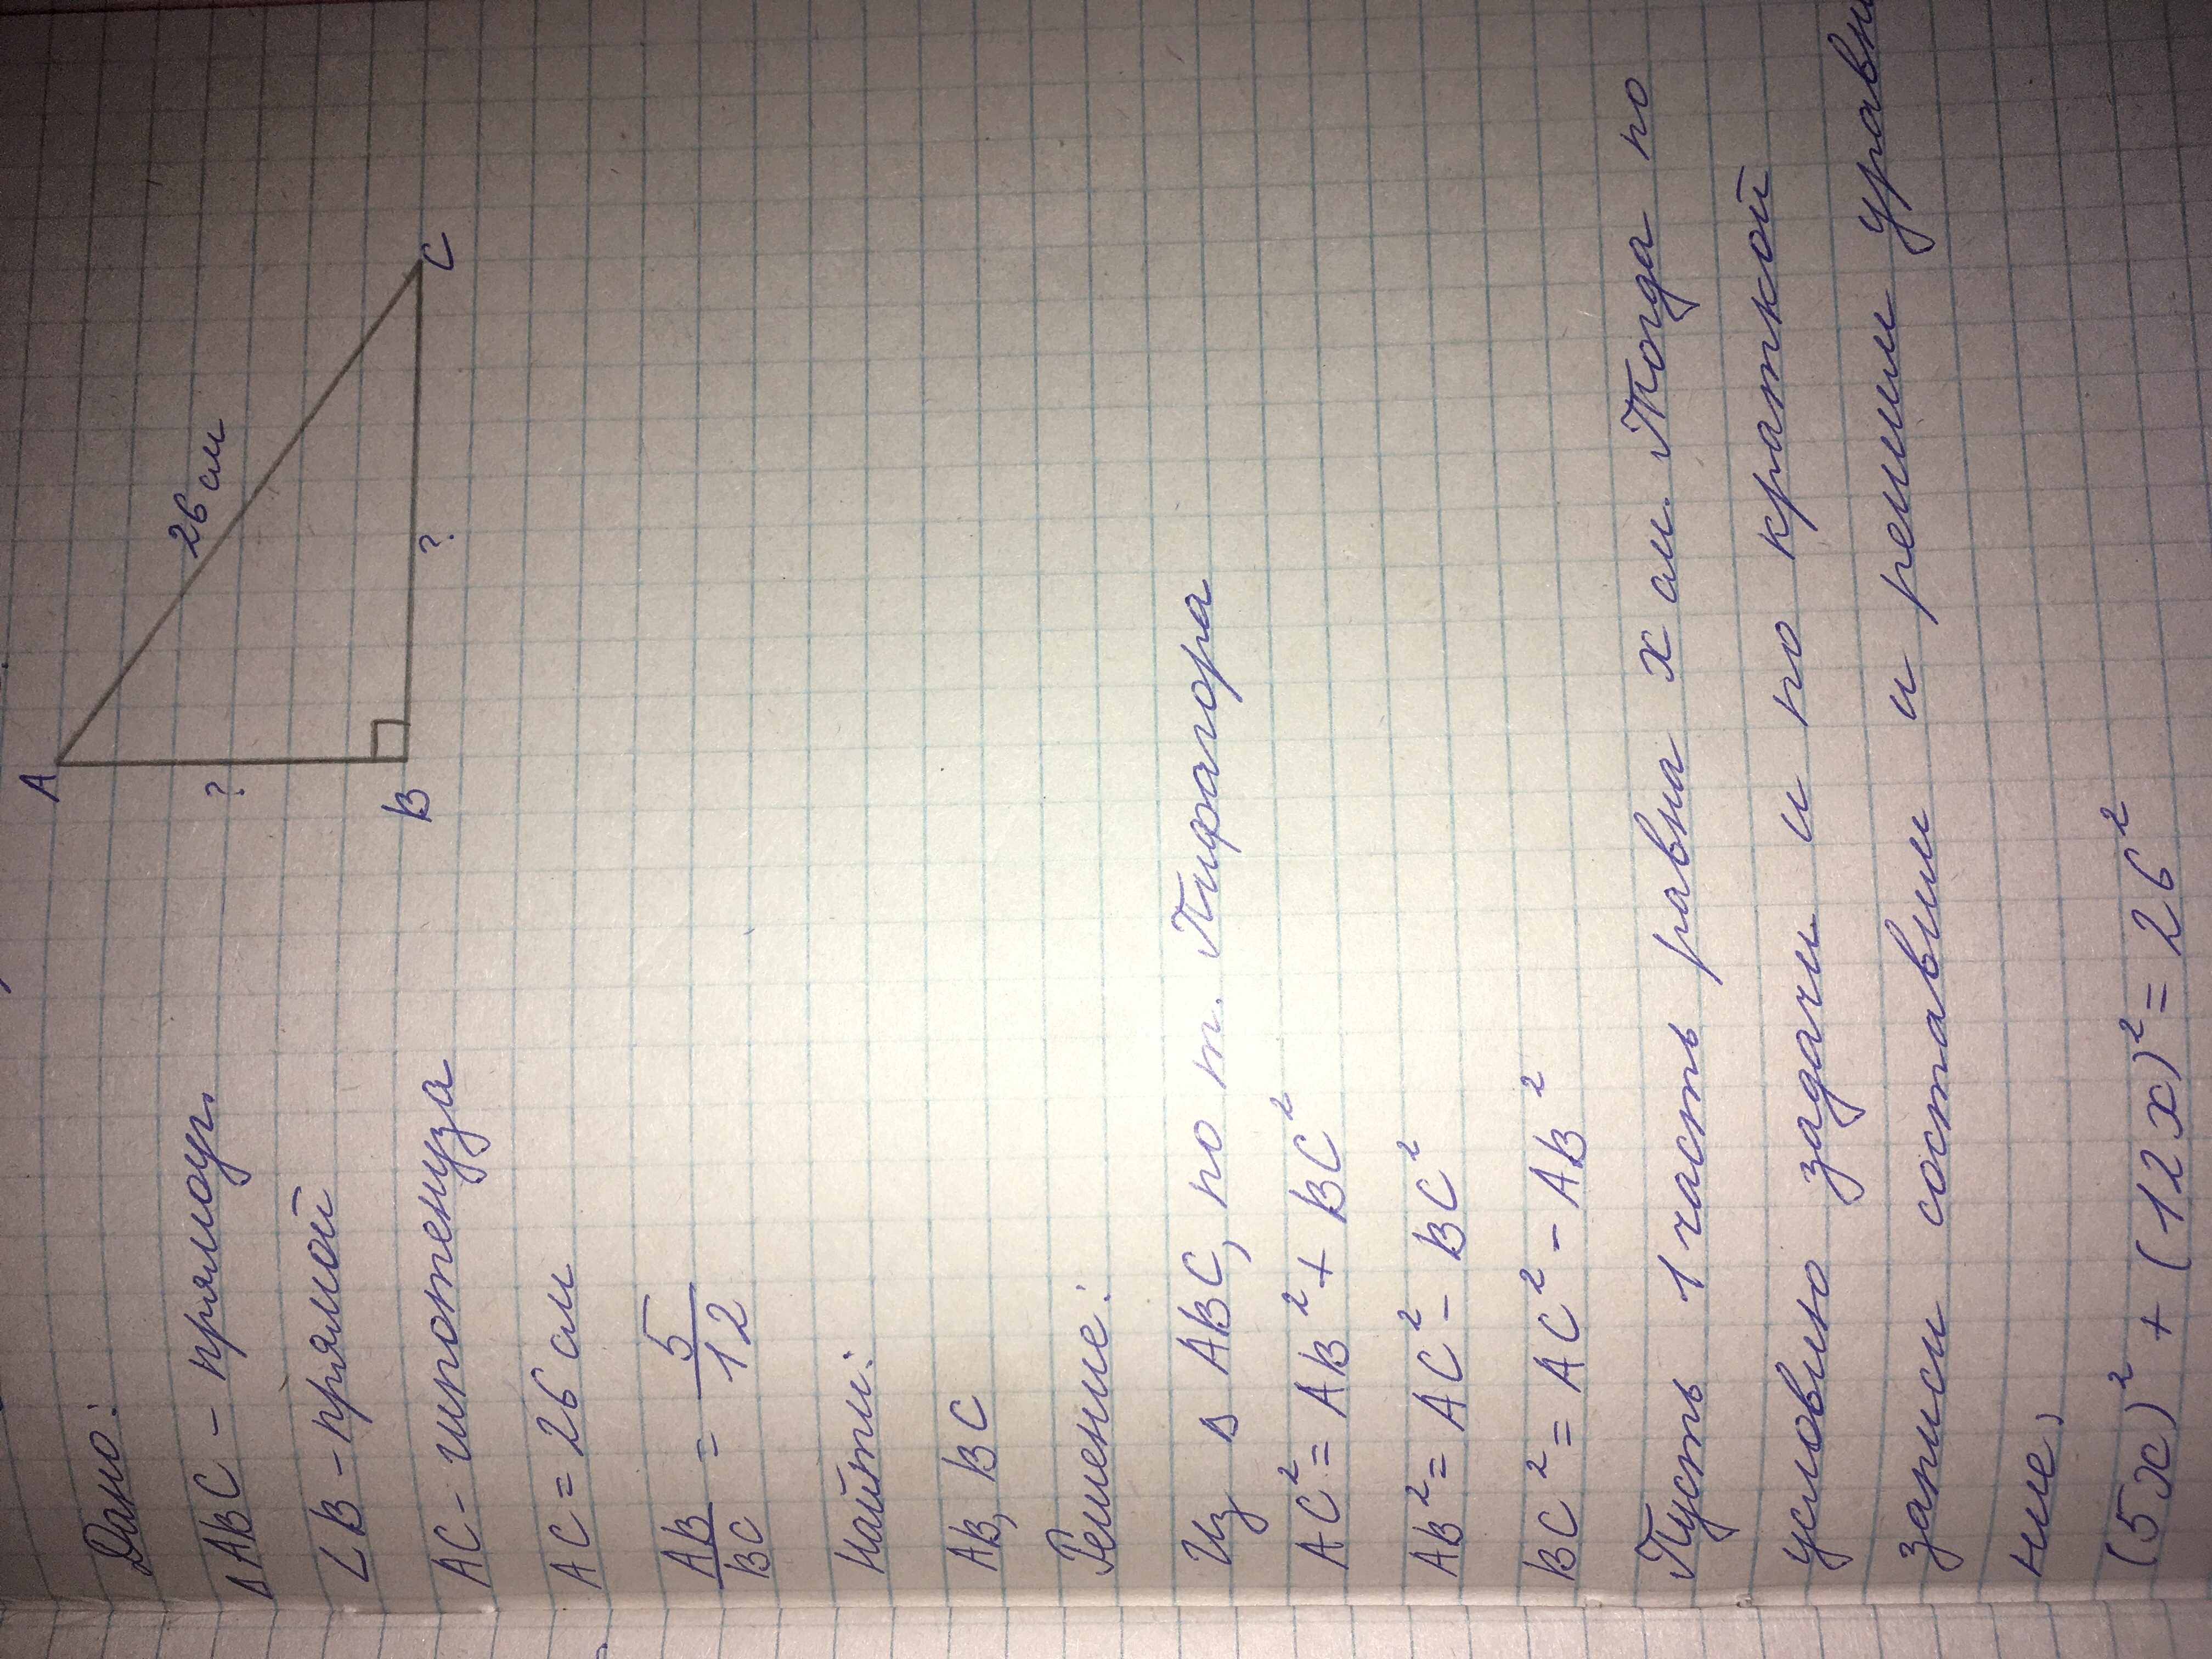 Дано:
∆ABC - прямоуг.
∠B - прямой
AC - гипотенуза
AC = 26 см
AB/BC = 5/12
Найти:
AB, BC
A
26 см
?
B
?
C
Решение:
Из ∆ ABC, по т. Пифагора
AC² = AB² + BC²
AB² = AC² - BC²
BC² = AC² - AB²
Пусть 1 часть равна x см. Тогда по
условию задачи и по краткой
записи составим и решим уравне
ние,
(5x)² + (12x)² = 26²